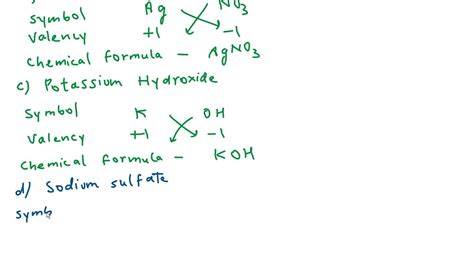 symbol Ag NO3
Valency +1 -1
chemical formula - AgNO3
c) Potassium Hydroxide
Symbol K OH
Valency +1 -1
Chemical formula - KOH
d) Sodium sulfate
symb